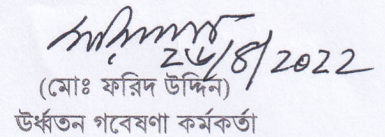 ২৬/৪/2022
(মোঃ ফরিদ উদ্দিন)
উর্ধ্বতন গবেষণা কর্মকর্তা